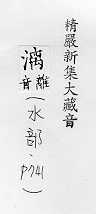 精嚴新集大藏音
漓離音(水部·P741)